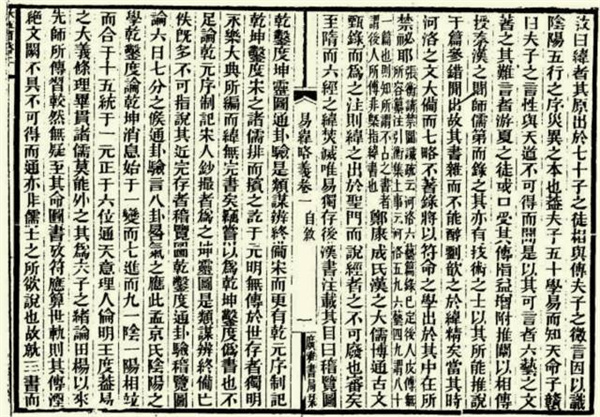 敘曰緯者其原出於七十子之徒相與傳夫子之微言因以識
陰陽五行之序災異之本也蓋夫子五十學易而知天命子贛
曰夫子之言性與天道不可得而聞是以其可言者六藝之文
著之其難言者游夏之徒或口受其傳指益增附推闡以相傳
授秦漢之間師儒第而錄之其亦有技術之士以其所能推說
于篇參錯間出故其書雜而不能醇劉歆之於緯精矣當其時
河洛之文大備而七略不著錄將以符命之學出於其中在所
禁祕耶張衡請禁圖讖疏云河洛六藝篇錄已定後人皮傅無所容篡注引衡集上事云河洛五九六藝四九謂八十
一篇也則知所謂不占之書者謂後人所傅非緯書也鄭康成氏漢之大儒博通古文
甄錄而為之注則緯之出於聖門而說經者之不可廢也審矣
至隋而六經之緯焚滅唯易獨存後漢書注載其目曰稽覽圖
易緯略義卷一 自敘 一 廣雅書局栞
乾鑿度坤靈圖通卦驗是類謀辨終備宋而更有乾元序制記
乾坤鑿度宋之諸儒排而擯之訖于元明無傳於世存者獨明
永樂大典所編而緯無完書矣竊嘗以為乾坤鑿度偽書也不
足論乾元序制記宋人鈔撮者為之坤靈圖是類謀辨終備亡
佚既多不可指說其近完存者稽覽圖乾鑿度通卦驗稽覽圖
論六日七分之候通卦驗言八卦晷氣之應此孟京氏陰陽之
學乾鑿度論乾坤消息始于一變而七進而九一陰一陽相竝
而合于十五統于一元正于六位通天意理人倫明王度蓋易
之大義條理畢貫諸儒莫能外之其為夫子之緒論田楊以來
先師所傳習較然無疑至其命圖書攷符應算世軌則其傳湮
絕文闕不具不可得而通亦非儒士之所欲說也故就三書而